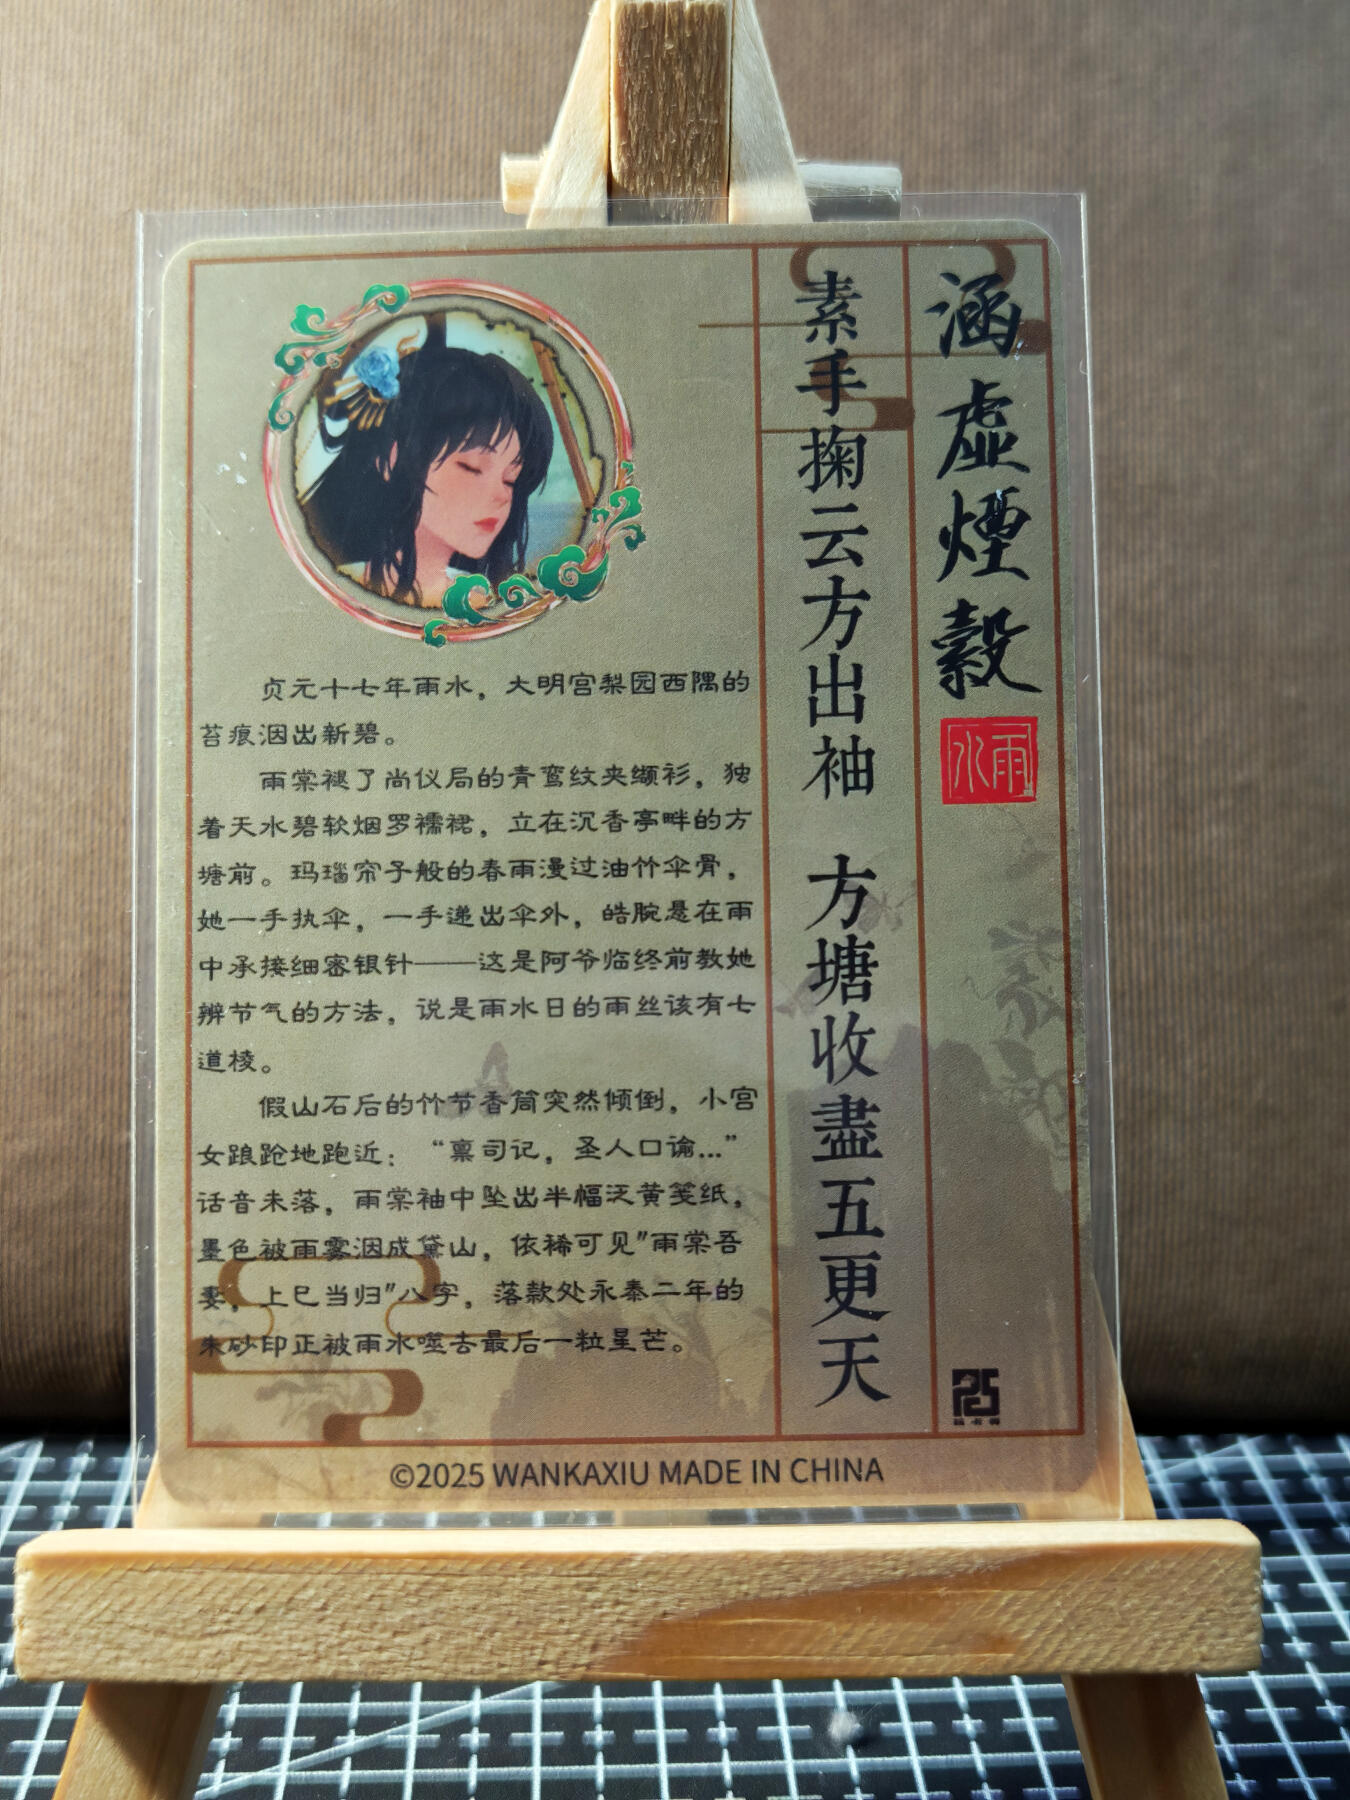 涵虛煙縠
雨水
素手掬云方出袖 方塘收盡五更天
贞元十七年雨水，大明宫梨园西隅的
苔痕洇出新碧。
雨棠褪了尚仪局的青鸾纹夹缬衫，独
着天水碧软烟罗襦裙，立在沉香亭畔的方
塘前。玛瑙帘子般的春雨漫过油竹伞骨，
她一手执伞，一手递出伞外，皓腕悬在雨
中承接细密银针——这是阿爷临终前教她
辨节气的方法，说是雨水日的雨丝该有七
道棱。
假山石后的竹节香筒突然倾倒，小宫
女踉跄地跑近：“禀司记，圣人口谕...”
话音未落，雨棠袖中坠出半幅泛黄笺纸，
墨色被雨雾洇成黛山，依稀可见"雨棠吾
妻，上巳当归"八字，落款处永泰二年的
朱砂印正被雨水噬去最后一粒星芒。
玩卡秀
©2025 WANKAXIU MADE IN CHINA